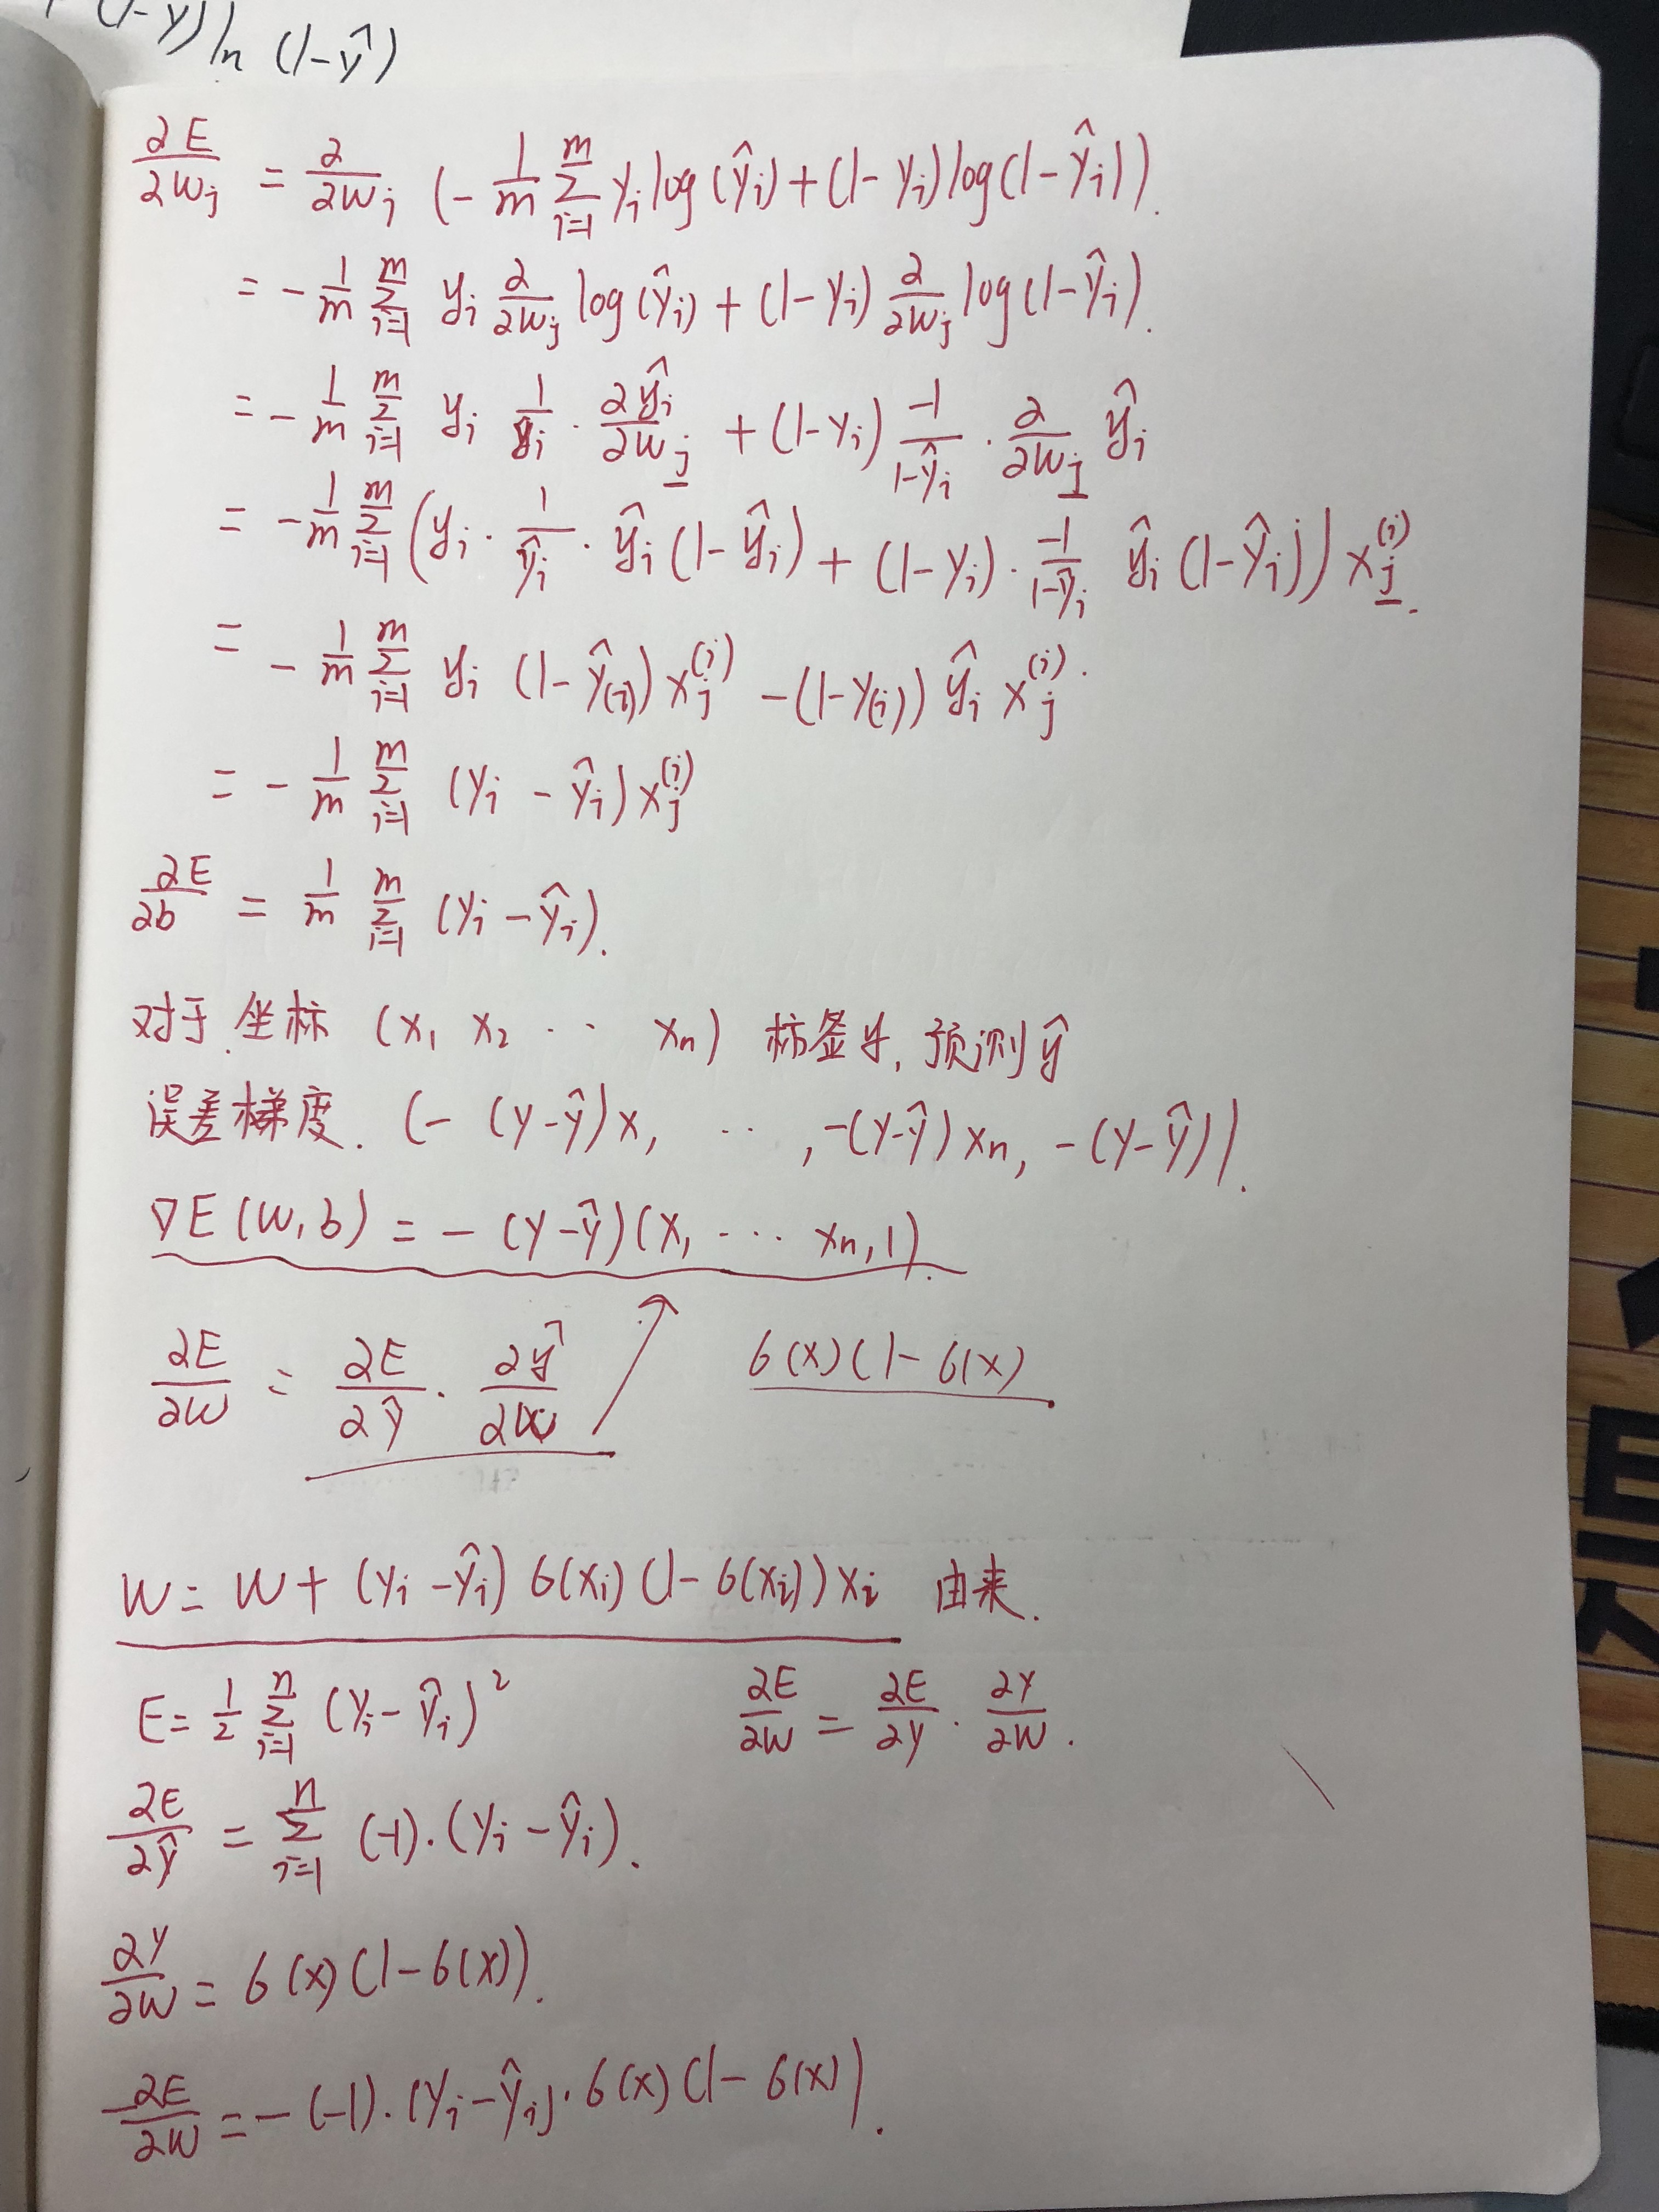 (1-y) ln (1-ŷ)
∂E/∂w_j = ∂/∂w_j (- 1/m Σ_{i=1}^{m} y_i log(ŷ_i) + (1-y_i) log(1-ŷ_i)).
= - 1/m Σ_{i=1}^{m} y_i ∂/∂w_j log(ŷ_i) + (1-y_i) ∂/∂w_j log(1-ŷ_i).
= - 1/m Σ_{i=1}^{m} y_i 1/ŷ_i · ∂ŷ_i/∂w_j + (1-y_i) -1/(1-ŷ_i) · ∂/∂w_j ŷ_i
= - 1/m Σ_{i=1}^{m} (y_i · 1/ŷ_i · ŷ_i (1-ŷ_i) + (1-y_i) · -1/(1-ŷ_i) ŷ_i (1-ŷ_i)) x_j^{(i)}.
= - 1/m Σ_{i=1}^{m} y_i (1-ŷ_{(i)}) x_j^{(i)} - (1-y_{(i)}) ŷ_i x_j^{(i)}.
= - 1/m Σ_{i=1}^{m} (y_i - ŷ_i) x_j^{(i)}
∂E/∂b = 1/m Σ_{i=1}^{m} (y_i - ŷ_i).
对于坐标 (x_1 x_2 ·· x_n) 标签y, 预测ŷ
误差梯度. (- (y-ŷ)x_1 ·· , -(y-ŷ)x_n, -(y-ŷ)).
∇E(w,b) = - (y-ŷ)(x_1 ··· x_n, 1).
∂E/∂w = ∂E/∂ŷ · ∂ŷ/∂w
σ(x)(1-σ(x)
w = w + (y_i - ŷ_i) σ(x_i)(1-σ(x_i)) x_i 由来.
E = 1/2 Σ_{i=1}^{n} (y_i - ŷ_i)^2
∂E/∂w = ∂E/∂y · ∂y/∂w.
∂E/∂ŷ = Σ_{i=1}^{n} (-1)·(y_i - ŷ_i).
∂y/∂w = σ(x)(1-σ(x)).
-∂E/∂w = -(-1)·(y_i - ŷ_i)·σ(x)(1-σ(x)).